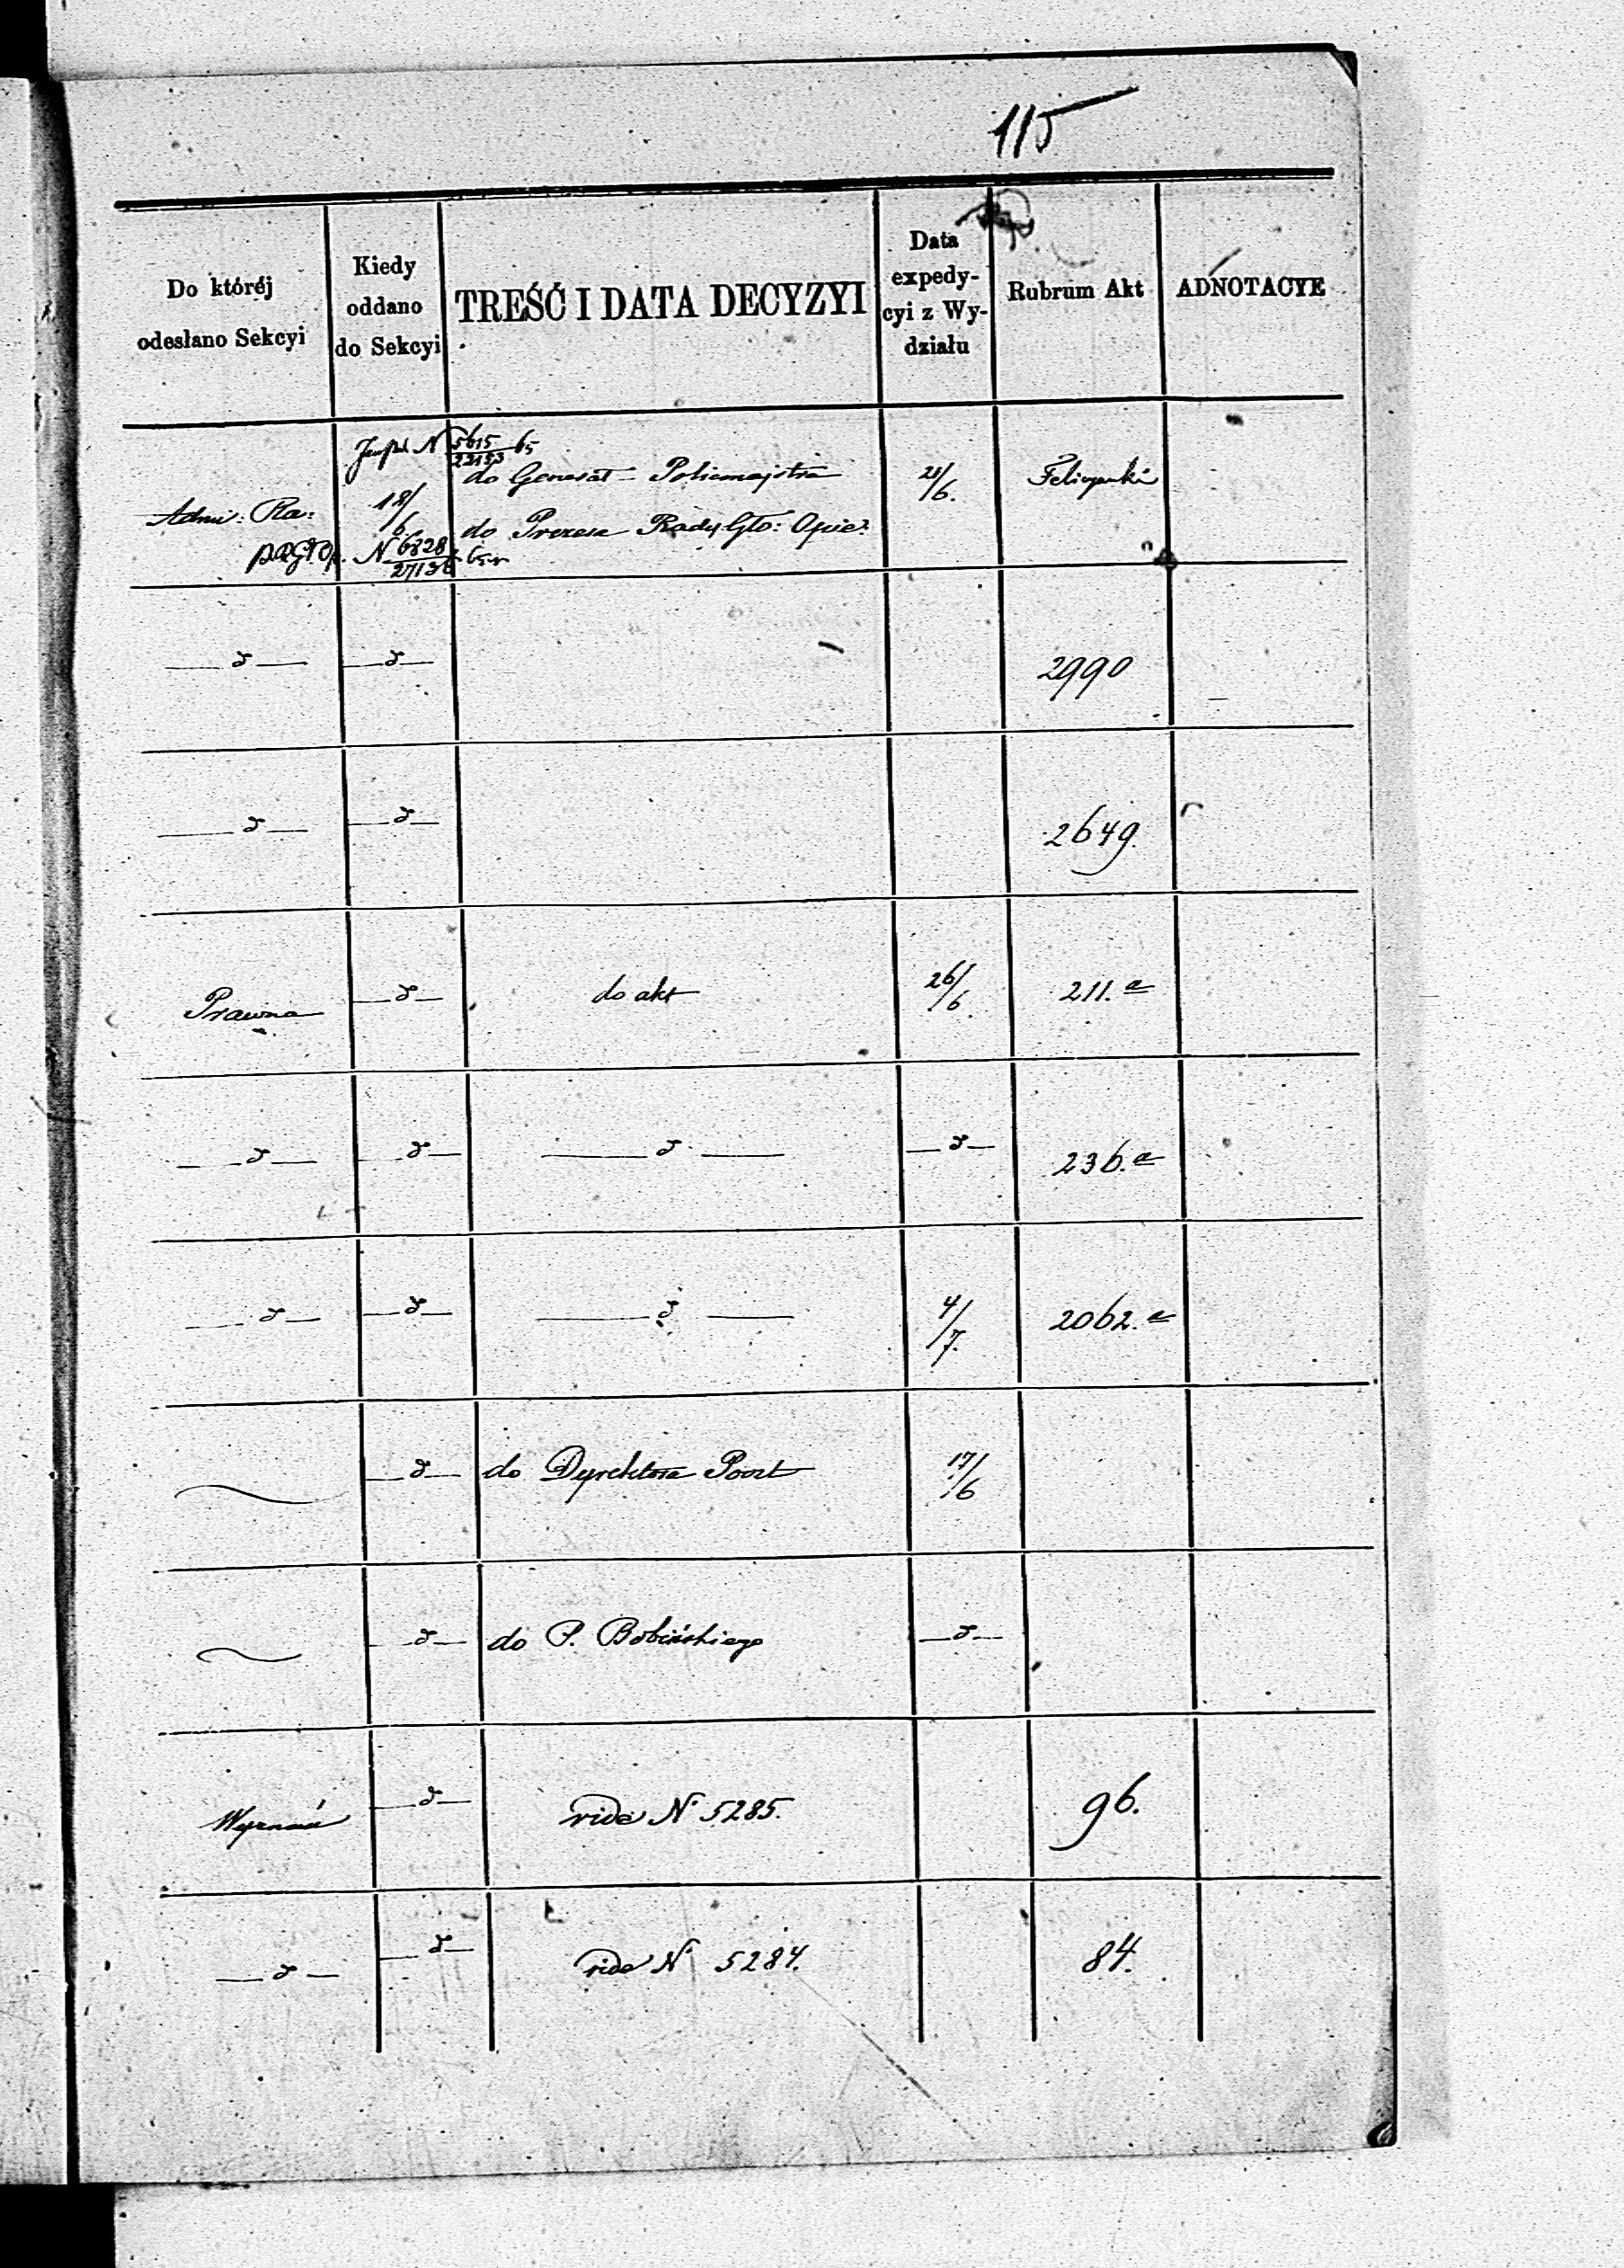 115
Do któréj
odesłano Sekcyi
Kiedy
oddano
do Sekcyi
TREŚĆ I DATA DECYZYI
Data
expedy-
cyi z Wy-
działu
Rubrum Akt
ADNOTACYE
N 5615 65
22153
Admi: Ra:
18/6
do Generał-Policmajstra
do Prezesa Rady Głó: Opie:
21/6.
N 6828
27136
— d —
— d —
2990
— d —
— d —
2649.
Prawna
— d —
do akt
26/6
211.a
— d —
— d —
— d —
— d —
236.a
— d —
— d —
— d —
4/7.
2062.a
— d —
do Dyrektora Poczt
17/6
— d —
do P. Bobińskiego
— d —
Wyznań
— d —
vide N° 5285.
96.
— d —
— d —
vide N° 5284.
84.